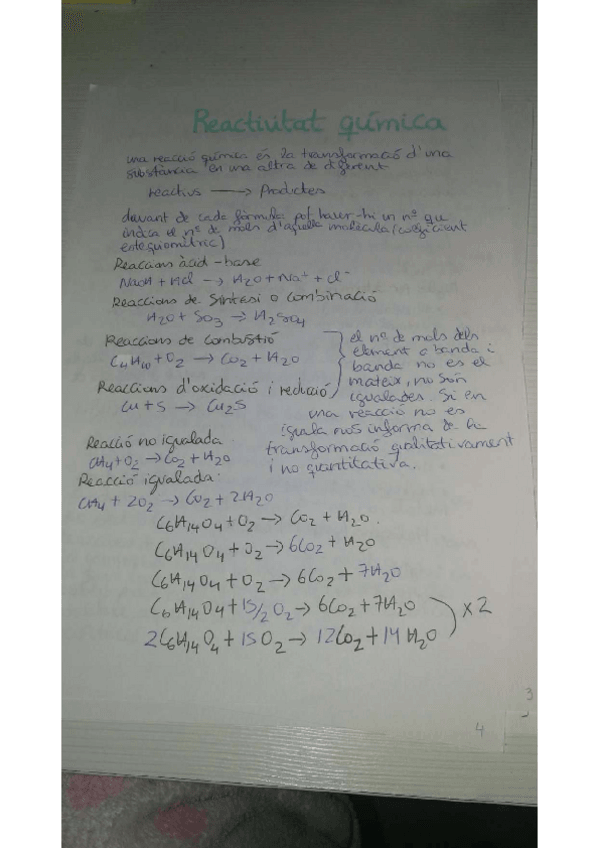 Reactivitat química
una reacció química és la transformació d'una
substància en una altra de diferent
reactius → Productes
davant de cada fórmula pot haver-hi un nº que
indica el nº de mols d'aquella molècula (coeficient
estequiomètric)
Reaccions àcid-base
NaOH + HCl → H2O + Na+ + Cl-
Reaccions de síntesi o combinació
H2O + SO3 → H2SO4
Reaccions de combustió
C4H10 + O2 → CO2 + H2O
Reaccions d'oxidació i reducció
Cu + S → Cu2S
el nº de mols dels
element a banda i
banda no es el
mateix, no són
igualades. Si en
una reacció no es
iguala nos informa de la
transformació qalitativament
i no quantitativa.
Reació no igualada
CH4 + O2 → CO2 + H2O
Reacció igualada:
CH4 + 2O2 → CO2 + 2H2O
C6H14O4 + O2 → CO2 + H2O.
C6H14O4 + O2 → 6CO2 + H2O
C6H14O4 + O2 → 6CO2 + 7H2O
C6H14O4 + 15/2 O2 → 6CO2 + 7H2O
2C6H14O4 + 15O2 → 12CO2 + 14H2O
x2
3
4